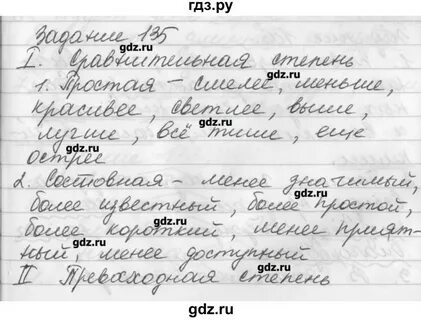 гдз.ру
Задание 135
I. Сравнительная степень
1. Простая – смелее, меньше,
красивее, светлее, выше,
лучше, всё тише, еще
острее
2. Составная – менее значимый,
более известный, более простой,
более короткий, менее прият-
ный, менее доступный
II Превосходная степень
gdz.ru
gdz.ru
gdz.ru
gdz.ru
gdz.ru
gdz.ru
gdz.ru
gdz.ru
gdz.ru
gdz.ru
gdz.ru
gdz.ru